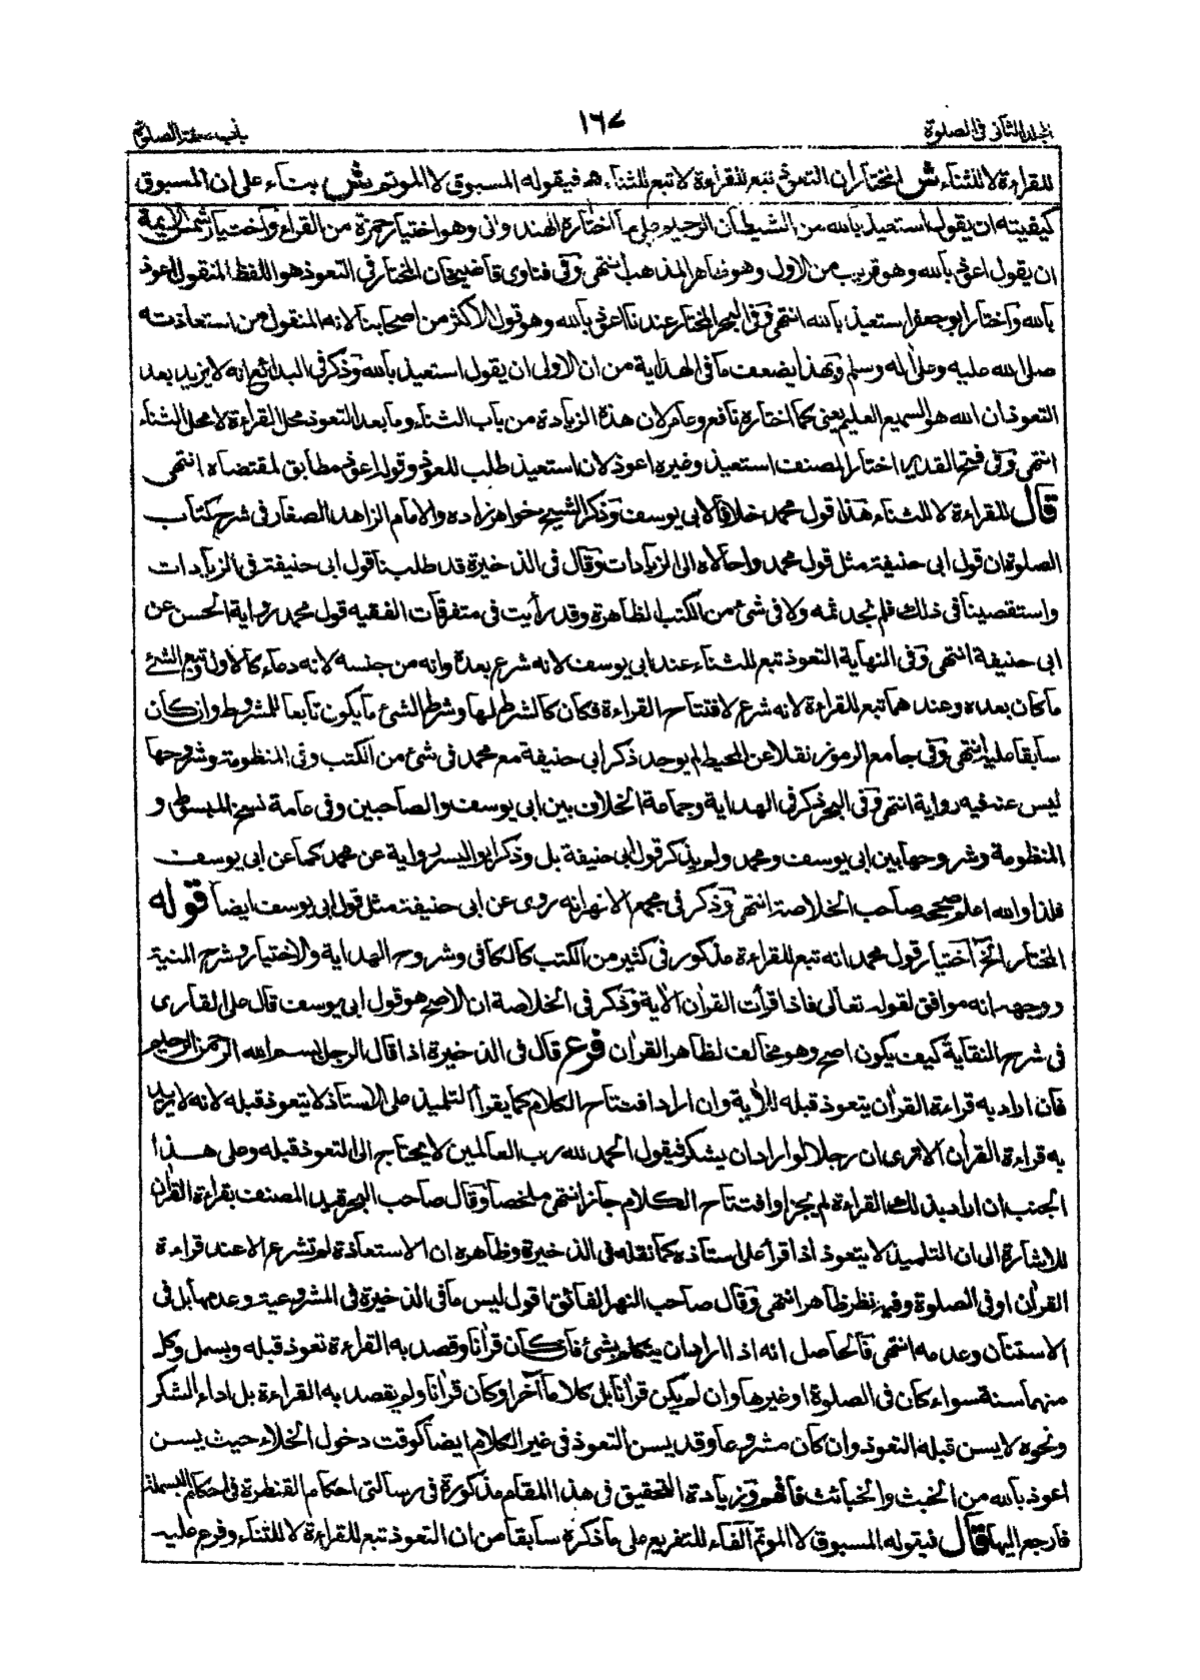 المجلد الثانى فى الصلوة ١٦٧ باب صفة الصلوة
للقراءة لا للثناء ش المختار ان التعوذ تبع للقراءة لا تبع للثناء هر فيقوله المسبوق لا الموتم ش بناء على ان المسبوق
كيفيته ان يقول استعيذ بالله من الشيطان الرجيم على ما اختاره الهندوانى وهو اختيار حمزة من القراء واختيار شمس الايمة
ان يقول اعوذ بالله وهو قريب من الاول وهو ظاهر المذهب انتهى وفى فتاوى قاضيخان المختار فى التعوذ هو اللفظ المنقول اعوذ
بالله واختار ابو جعفر استعيذ بالله انتهى وفى البحر المختار عندنا اعوذ بالله وهو قول الاكثر من اصحابنا لانه المنقول من استعاذته
صلى الله عليه وعلى اله وسلم وبهذا يضعف ما فى الهداية من ان الاولى ان يقول استعيذ بالله وذكر فى البدائع انه لا يزيد بعد
التعوذ ان الله هو السميع العليم يعنى كما اختاره نافع وعامر لان هذة الزيادة من باب الثناء وما بعد التعوذ محل القراءة لا محل الثناء
انتهى وفى فتح القدير اختار المصنف استعيذ وغيره اعوذ لان استعيذ طلب للعوذ وقوله اعوذ مطابق لمقتضاه انتهى
قال للقراءة لا للثناء هذا قول محمد خلافا لابى يوسف وذكر الشيخ خواهرزاده والامام الزاهد الصفار فى شرح كتاب
الصلوة ان قول ابى حنيفة مثل قول محمد واحالاه الى الزيادات وقال فى الذخيرة قد طلبنا قول ابى حنيفة فى الزيادات
واستقصينا فى ذلك فلم نجد ثمه ولا فى شئ من الكتب الظاهرة وقد رأيت فى متفرقات الفقيه قول محمد رواية الحسن عن
ابى حنيفة انتهى وفى النهاية التعوذ تبع للثناء عند ابى يوسف لانه شرع بعدة وانه من جنسه لانه دعاء كالاول وتبع الشئ
ما كان بعده وعندهما تبع للقراءة لانه شرع لافتتاح القراءة فكان كالشرط لها وشرط الشئ ما يكون تابعا للمشروط وان كان
سابقا عليه انتهى وفى جامع الرموز نقلا عن المحيط لم يوجد ذكر ابى حنيفة مع محمد فى شئ من الكتب وفى المنظومة وشروحها
ليس عنه فيه رواية انتهى وفى البحر ذكر فى الهداية وجماعة الخلاف بين ابى يوسف والصاحبين وفى عامة نسخ المبسوط و
المنظومة وشروحها بين ابى يوسف ومحمد ولم يذكر قول ابى حنيفة بل وذكر ابو اليسر رواية عن محمد كما عن ابى يوسف
فلذا والله اعلم صححه صاحب الخلاصة انتهى وذكر فى مجمع الانهر انه روى عن ابى حنيفة مثل قول ابى يوسف ايضا قوله
المختار الخ اختيار قول محمد انه تبع للقراءة مذكور فى كثير من الكتب كالكافى وشروح الهداية والاختيار وشرح المنية
ووجهه انه موافق لقوله تعالى فاذا قرأت القرأن الأية وذكر فى الخلاصة ان الاصح هو قول ابى يوسف قال على القارى
فى شرح النقاية كيف يكون اصح وهو مخالف لظاهر القرأن فرع قال فى الذخيرة اذا قال الرجل بسم الله الرحمن الرحيم
فان اراد به قراءة القرأن يتعوذ قبله للأية وان اراد افتتاح الكلام كما يقرأ التلميذ على الاستاذ لا يتعوذ قبله لانه لا يريد
به قراءة القرأن الا ترى ان رجلا لو اراد ان يشكر فيقول الحمد لله رب العالمين لا يحتاج الى التعوذ قبله وعلى هذا
الجنب ان اراد بذلك القراءة لم يجز او افتتاح الكلام جاز انتهى ملخصا وقال صاحب البحر قيد المصنف بقراءة القرأن
للاشارة الى ان التلميذ لا يتعوذ اذا قرأ على استاذه كما نقله فى الذخيرة وظاهره ان الاستعاذة لم تشرع الا عند قراءة
القرأن او فى الصلوة وفيه نظر ظاهر انتهى وقال صاحب النهر الفائق اقول ليس ما فى الذخيرة فى المشروعية وعدمها بل فى
الاستنان وعدمه انتهى فالحاصل انه اذا اراد ان يتكلم بشئ فان كان قرأنا وقصد به القراءة تعوذ قبله وبسمل وكل
منهما سنة سواء كان فى الصلوة او غيرها وان لم يكن قرأنا بل كلاما أخر او كان قرأنا ولم يقصد به القراءة بل اداء الشكر
ونحوه لا يسن قبله التعوذ وان كان مشروعا وقد يسن التعوذ فى غير الكلام ايضا كوقت دخول الخلاء حيث يسن
اعوذ بالله من الخبث والخبائث فافهم وزيادة التحقيق فى هذا المقام مذكورة فى رسالتى احكام القنطرة فى احكام البسملة
فارجع اليها قال فيقوله المسبوق لا الموتم الفاء للتفريع على ما ذكره سابقا من ان التعوذ تبع للقراءة لا للثناء وفرع عليه